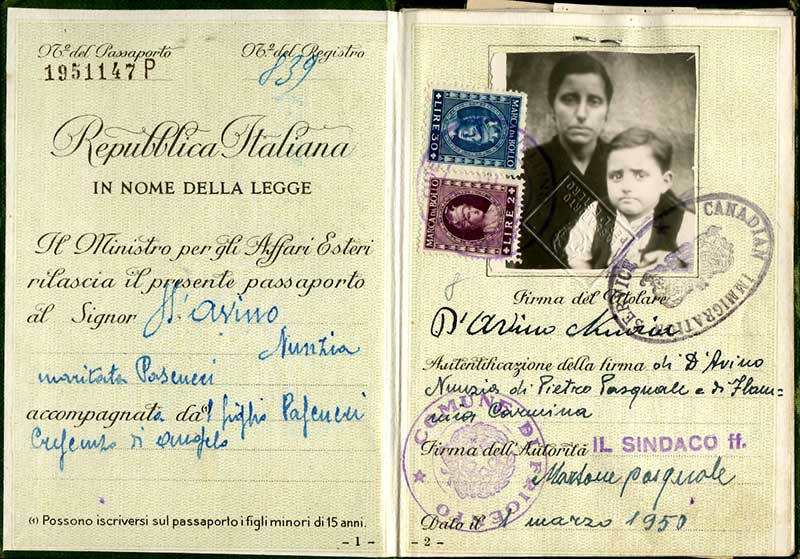 Nº del Passaporto
Nº del Registro
1951147 P
839
Repubblica Italiana
IN NOME DELLA LEGGE
Il Ministro per gli Affari Esteri
rilascia il presente passaporto
al Signor D'Avino
Nunzia
maritata Pascucci
accompagnata da(1) 1 figlio Pascucci
Crescenzo di Angelo
(1) Possono iscriversi sul passaporto i figli minori di 15 anni.
- 1 -
LIRE 30
MARCA DA BOLLO
MARCA DA BOLLO
LIRE 2
CANADIAN IMMIGRATION SERVICE
Firma del Titolare
D'Avino Nunzia
Autentificazione della firma di D'Avino
Nunzia di Pietro Pasquale e di Flam-
minia Carmina
COMUNE DI FRIGENTO
Firma dell'Autorità IL SINDACO ff.
Martone pasquale
Dato il 1 marzo 1950
- 2 -